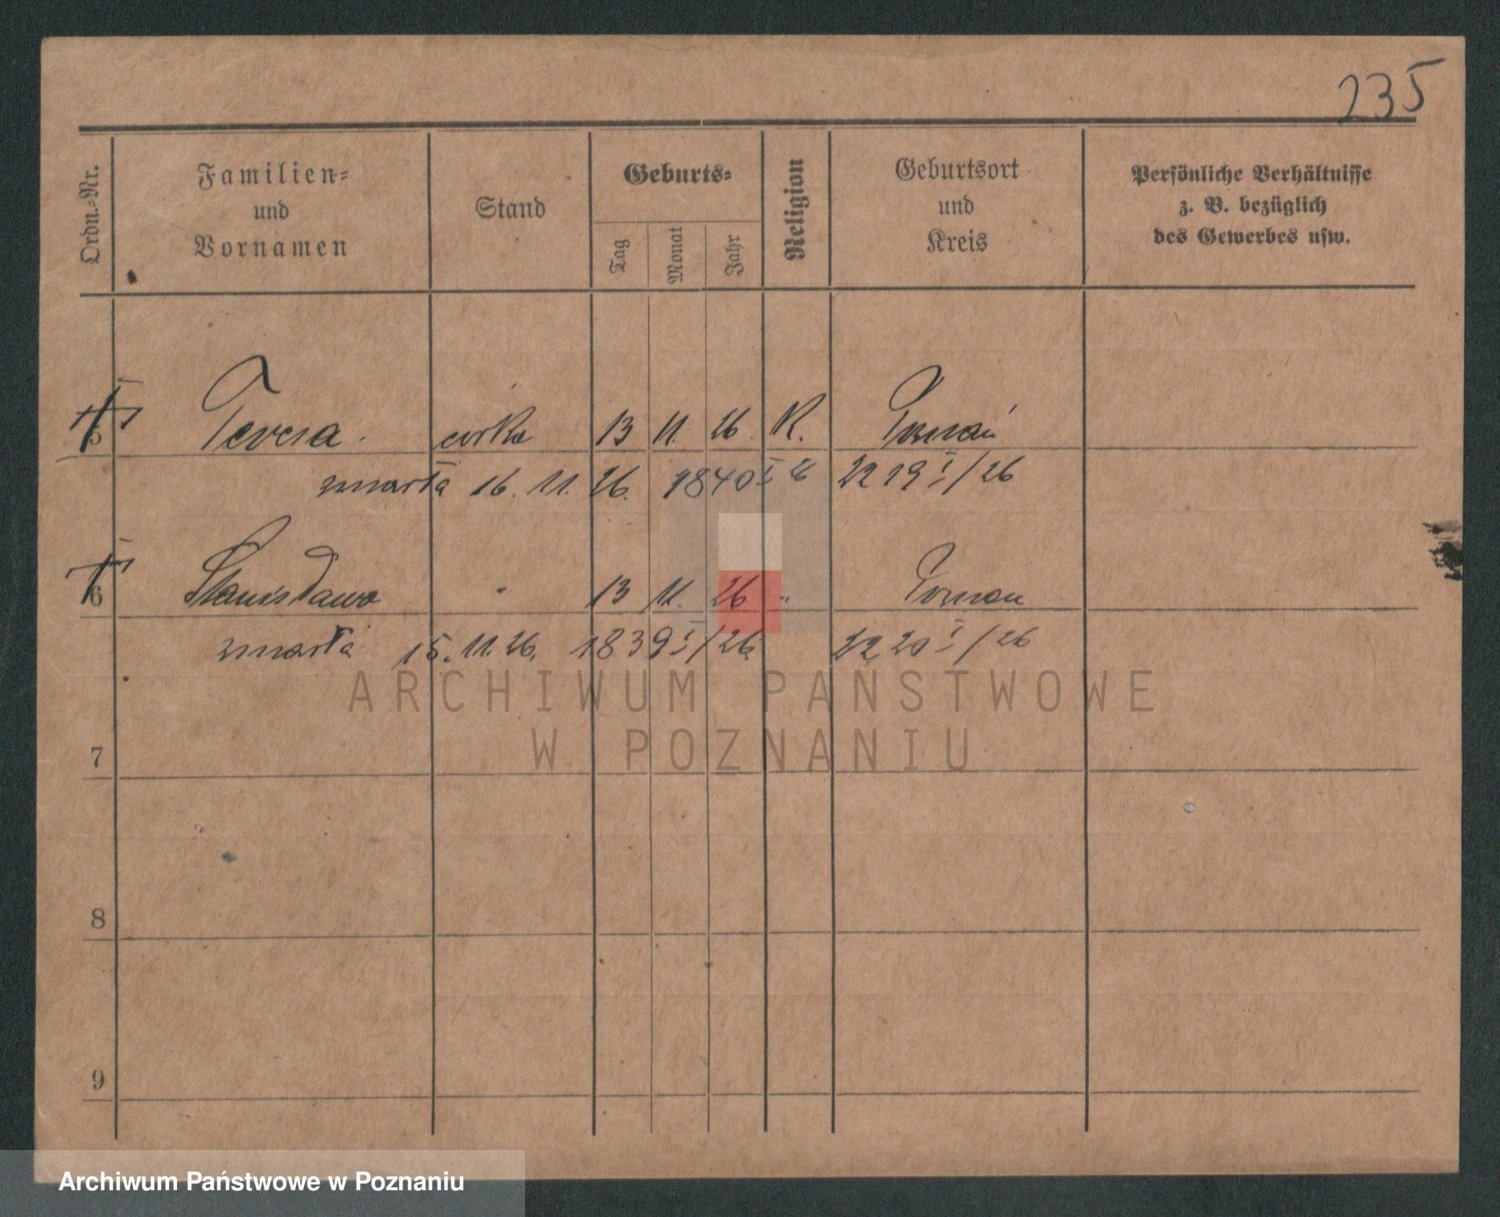 235
Ordn.-Nr.
Familien-
und
Vornamen
Stand
Geburts-
Tag
Monat
Jahr
Religion
Geburtsort
und
Kreis
Persönliche Verhältnisse
z. B. bezüglich
des Gewerbes usw.
5 Teresa. corka 13 11. 26. K. Poznań
zmarła 16. 11. 26. 1840 I 26 2219 I/26
6 Stanisława " 13 11. 26 " Poznan
zmarła 15. 11. 26. 1839 I/26 2220 I/26
ARCHIWUM PAŃSTWOWE
W POZNANIU
7
8
9
Archiwum Państwowe w Poznaniu